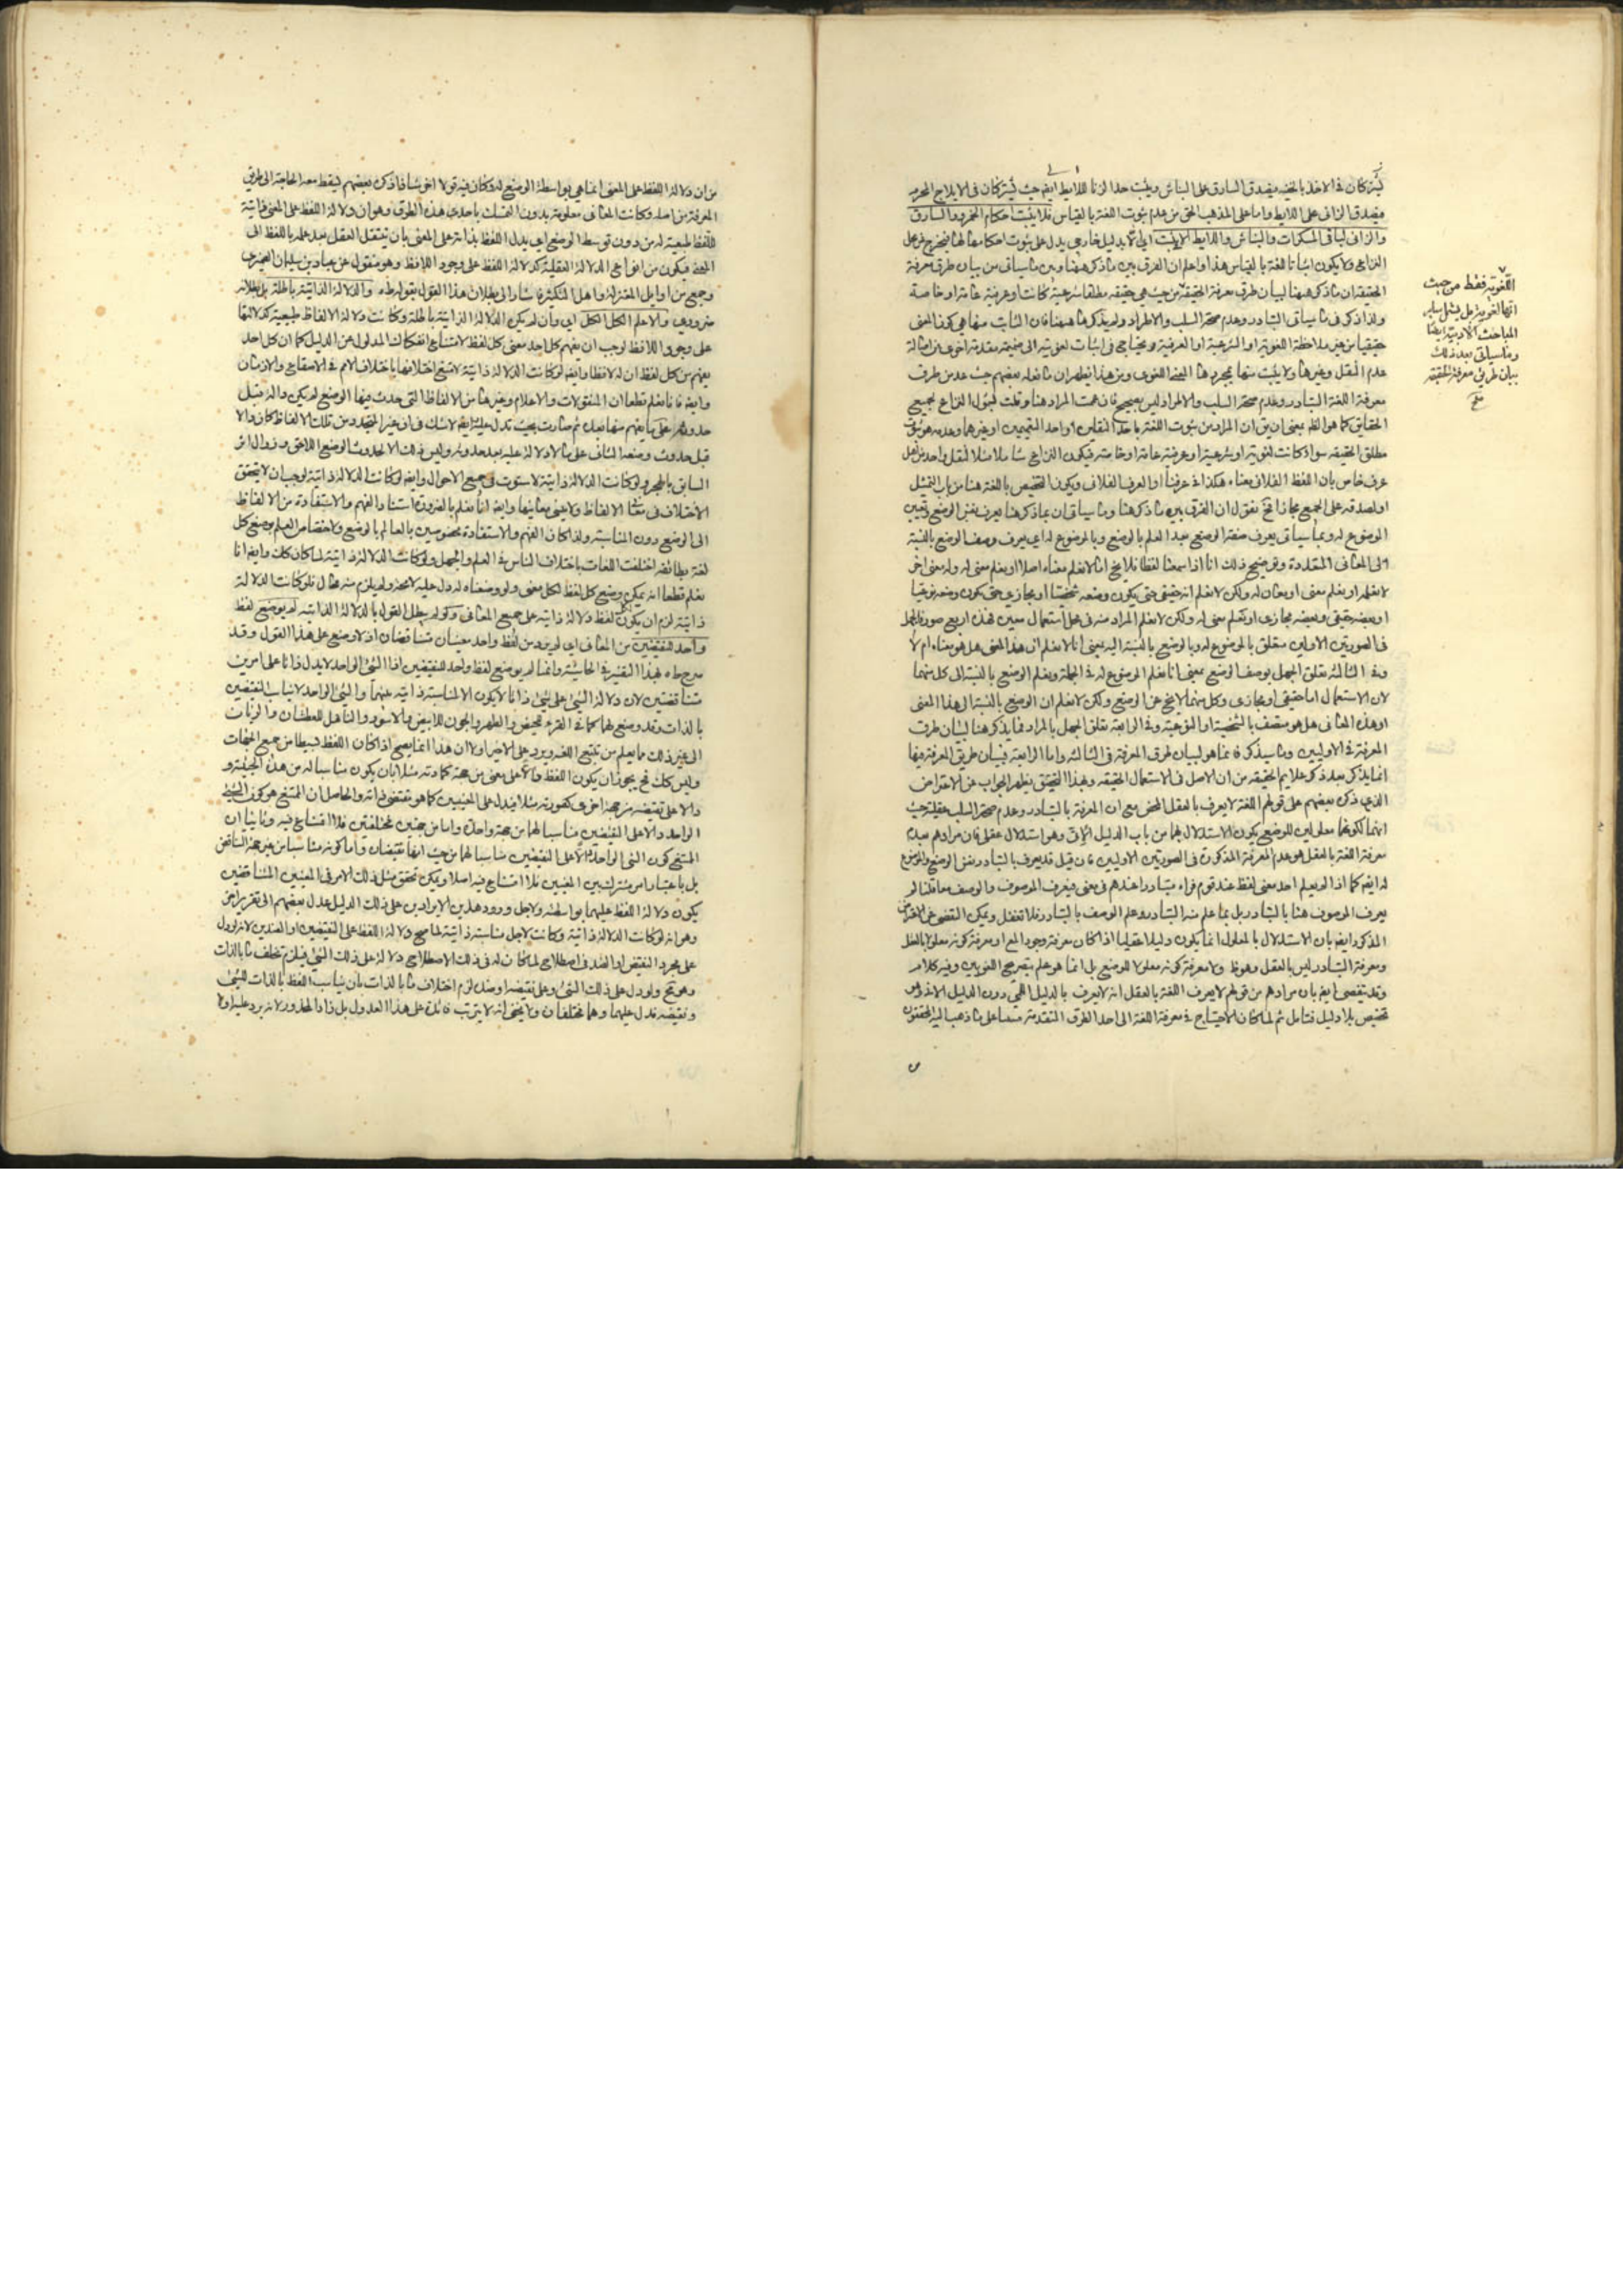 يشتركان في الاخذ بالخفيه فيصدق السارق على النباش ويثبت حد الزنا للايط ايضا حيث يشتركان في الايلاج المحرم
فيصدق الزاني على اللايط واما على المذهب الحق من عدم ثبوت اللغة بالقياس فلا يثبت احكام الخمر والسارق
والزاني لباقي المسكرات والنباش واللايط الا بدليل خارجي يدل على ثبوت احكامها لها فيخرج عن محل
النزاع ولا يكون اثباتا للغة بالقياس هذا واعلم ان الفرق بين ما ذكر ههنا وبين ما سياتي من بيان طرق معرفة
الحقيقة ان ما ذكر ههنا لبيان طرق معرفة الحقيقة من حيث هي حقيقة مطلقا شرعية كانت او عرفية عامة او خاصة
ولذا ذكر في ما سياتي التبادر وعدم صحة السلب والاطراد ولم يذكرها ههنا فان الثابت منها هي كون المعنى
حقيقيا من غير ملاحظة اللغوية او الشرعية او العرفية ويحتاج في اثبات لغويته الى ضميمة مقدمة اخرى من اصالة
عدم النقل وغيرها ولا يثبت منها بمجردها المعنى اللغوي ومن هذا يظهر ان ما فعله بعضهم حيث عد من طرق
معرفة اللغة التبادر وعدم صحة السلب والاطراد ليس بصحيح
مطلق الحقيقة سواء كانت لغوية او شرعية او عرفية عامة او خاصة فيكون النزاع شاملا
عرف خاص بان اللفظ الفلاني معناه هكذا في عرفنا او العرف الفلاني ويكون التخصيص باللغة هنا من باب التمثيل
الموضوع له وبما سياتي يعرف صفة الوضع بعد العلم بالوضع وبالموضوع له اي يعرف وصف الوضع بالنسبة
الى المعاني المتعددة وتوضيح ذلك انا اذا سمعنا لفظا فلا يخ اما لا نعلم معناه اصلا او نعلم معنى له وله معنى اخر
لا نعلمه او نعلم معنى او معان له ولكن لا نعلم انه حقيقي حتى يكون وضعه شخصيا او مجازي حتى يكون وضعه نوعيا
في الصورتين الاوليين متعلق بالموضوع له وبالوضع بالنسبة اليه بمعنى انا لا نعلم ان هذا المعنى هل هو معناه ام لا
وفي الثالثة تعلق الجهل بوصف الوضع بمعنى انا نعلم الموضوع له في الجملة ونعلم الوضع بالنسبة الى كل منهما
لان الاستعمال اما حقيقي او مجازي وكل منهما لا يخ عن الوضع ولكن لا نعلم ان الوضع بالنسبة الى هذا المعنى
او هذه المعاني هل هو متصف بالشخصية او النوعية وفي الرابعة تعلق الجهل بالمراد فما يذكر هنا لبيان طرق
المعرفة في الاوليين وما سيذكر فانما هو لبيان طرق المعرفة في الثالثة واما الرابعة فبيان طريق المعرفة فيها
انما يذكر بعد ذكر علايم الحقيقة من ان الاصل في الاستعمال الحقيقة وبهذا التحقيق يظهر الجواب عن الاعتراض
الذي ذكره بعضهم على قولهم اللغة لا يعرف بالعقل المحض مع ان المعرفة بالتبادر وعدم صحة السلب عقلية حيث
انهما لكونهما معلولين للوضع يكون الاستدلال بهما من باب الدليل الاني وهو استدلال عقلي فان مرادهم بعدم
معرفة اللغة بالعقل هو عدم المعرفة المذكورة في الصورتين الاوليين فان قيل قد يعرف بالتبادر نفس الوضع والموضوع
له ايضا كما اذا لم يعلم احد معنى لفظ عند قوم فراه متبادرا عندهم في معنى فيعرف الموصوف والوصف معا قلنا لم
يعرف الموصوف هنا بالتبادر بل بما علم منه التبادر وعلم الوصف بالتبادر فلا تغفل ويمكن التفصي عن الاعتراض
المذكور ايضا بان الاستدلال بالمعلول انما يكون دليلا عقليا اذا كان معرفة وجود المع او معرفة كونه معلولا بالعقل
ومعرفة التبادر ليس بالعقل وهو ظ ولا معرفة كونه معلولا للوضع بل انما هو علم بتصريح اللغويين وفيه كلام
وقد يتفصى ايضا بان مرادهم من قولهم لا يعرف اللغة بالعقل انه لا يعرف بالدليل اللمي دون الدليل الاني
تخصيص بلا دليل فتامل ثم لما كان الاحتياج في معرفة اللغة الى احد الطرق المتقدمة مبنيا على ما ذهب اليه المحققون
اللغوية فقط من حيث
انها لغوية بل يشمل ساير
المباحث الادبية ايضا
وما سياتي بعد ذلك
بيان طرق معرفة الحقيقة
من ان دلالة اللفظ على المعنى انما هي بواسطة الوضع له وكان فيه قولا اخر شاذا ذكره بعضهم ليسقط معه الحاجة الى طريق
المعرفة من اصله وكانت المعاني معلومة بدون التمسك باحدى هذه الطرق وهو ان دلالة اللفظ على المعنى ذاتية
للفظ طبيعية له من دون توسط الوضع اي يدل اللفظ بذاته على المعنى بان ينتقل العقل بعد علمه باللفظ الى
المعنى فيكون من انواع الدلالة العقلية كدلالة اللفظ على وجود اللافظ وهو منقول عن عباد بن سليمان الصيمري
وجمع من اوايل المعتزلة واهل التكسير فاشار الى بطلان هذا القول بقوله طه والدلالة الذاتية باطلة بل بطلانه
ضروري والا علم الكل الكل اي وان لم يكن الدلالة الذاتية باطلة وكانت دلالة الالفاظ طبيعية كدلالتها
على وجود اللافظ لوجب ان يفهم كل احد معنى كل لفظ لامتناع انفكاك المدلول عن الدليل كما ان كل احد
يفهم من كل لفظ ان له لافظا وايضا لو كانت الدلالة ذاتية لامتنع اختلافها باختلاف الامم في الاصقاع والازمان
وايضا فانا نعلم قطعا ان المنقولات والاعلام وغيرها من الالفاظ التي حدث فيها الوضع لم يكن دالة قبل
السابق بالهجر ولو كانت الدلالة ذاتية لاستوت في جميع الاحوال وايضا لو كانت الدلالة ذاتية لوجب ان لا يتحقق
الى الوضع دون المناسبة ولذا كان الفهم والاستفادة مخصوصين بالعالم بالوضع
نعلم قطعا انه يمكن وضع كل لفظ لكل معنى ولو وضعناه له دل عليه لا محة ولم يلزم منه محال فلو كانت الدلالة
ذاتية لزم ان يكون لكل لفظ دلالة ذاتية على جميع المعاني ولو لم يبطل القول بالدلالة الذاتية لم يوضع لفظ
واحد للنقيضين من المعاني اي لم يرد من لفظ واحد معنيان متناقضان اذ لا وضع على هذا القول وقد
صرح طه بهذا التفسير في الحاشية وانما لم يوضع لفظ واحد للنقيضين اذ الشيء الواحد لا يدل ذاتا على امرين
متناقضين لان دلالة الشيء على شيء ذاتا لا يكون الا لمناسبة ذاتية بينهما والشيء الواحد لا يناسب النقيضين
بالذات وقد وضع لهما كما في القرء للحيض والطهر والجون للابيض والاسود والناهل للعطشان والريان
الى غير ذلك مما يعلم من تتبع اللغة ويرد على الاخير اولا ان هذا انما يصح اذا كان اللفظ بسيطا من جميع الجهات
وليس كك فح يجوز ان يكون اللفظ دالا على معنى من جهة كمادته مثلا بان يكون مناسبا له من هذه الحيثية و
دالا على نقيضه من جهة اخرى كصورته مثلا فيدل على المعنيين كما هو مقتضى ذاته والحاصل ان الممتنع هو كون الشيء
الواحد دالا على النقيضين مناسبا لهما من جهة واحدة واما من جهتين مختلفتين فلا امتناع فيه وثانيا ان
الممتنع كون الشيء الواحد دالا على النقيضين مناسبا لهما من حيث انهما نقيضان واما كونه مناسبا من غير جهة التناقض
بل باعتبار امر مشترك بين المعنيين فلا امتناع فيه اصلا ويمكن تحقق مثل ذلك الامر في المعنيين المتناقضين
يكون دلالة اللفظ عليهما بواسطته ولاجل ورود هذين الايرادين على ذلك الدليل عدل بعضهم الى تقرير اخر
وهو انه لو كانت الدلالة ذاتية وكانت لاجل مناسبة ذاتية لما صح دلالة اللفظ على النقيضين او الضدين لانه لو دل
على مجرد النقيض او الضد في اصطلاح لما كان له في ذلك الاصطلاح دلالة على ذلك الشيء فيلزم تخلف ما بالذات
وهو مح ولو دل على ذلك الشيء وعلى نقيضه او ضده لزم اختلاف ما بالذات بان يناسب اللفظ بالذات للشيء
ونقيضه فدل عليهما وهما مختلفان ولا يخفى انه لا يترتب فائدة على هذا العدول بل زاد المحذور لانه يرد عليه اولا